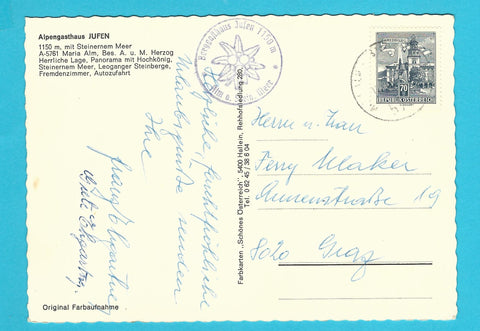 Alpengasthaus JUFEN
1150 m, mit Steinernem Meer
A-5761 Maria Alm, Bes. A. u. M. Herzog
Herrliche Lage, Panorama mit Hochkönig,
Steinernem Meer, Leoganger Steinberge,
Fremdenzimmer, Autozufahrt
Jufen 1150 m
Alm a. Stein. Meer
Herzliche, feuchtfröhliche
Urlaubsgrüße senden
Ihre
Farbkarten „Schönes Österreich", 5400 Hallein, Rehhofsiedlung 280,
Tel. 0 62 45 / 38 6 04
70
REPUBLIK ÖSTERREICH
Herrn u. Frau
Ferry Maker
Annenstraße 19
8020 Graz
Original Farbaufnahme